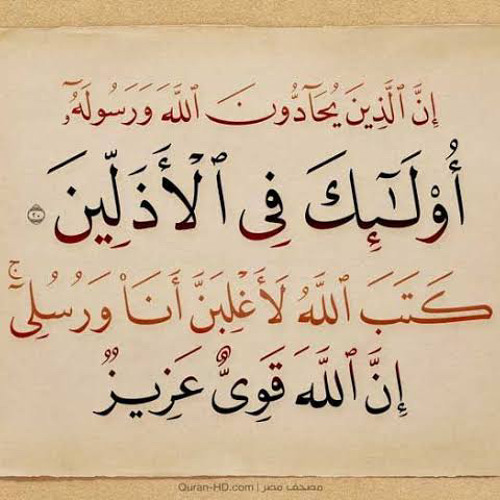 إِنَّ ٱلَّذِينَ يُحَآدُّونَ ٱللَّهَ وَرَسُولَهُۥٓ
أُو۟لَـٰٓئِكَ فِى ٱلْأَذَلِّينَ ٢٠
كَتَبَ ٱللَّهُ لَأَغْلِبَنَّ أَنَا۠ وَرُسُلِىٓ ۚ
إِنَّ ٱللَّهَ قَوِىٌّ عَزِيزٌ
Quran-HD.com | مصحف مصر